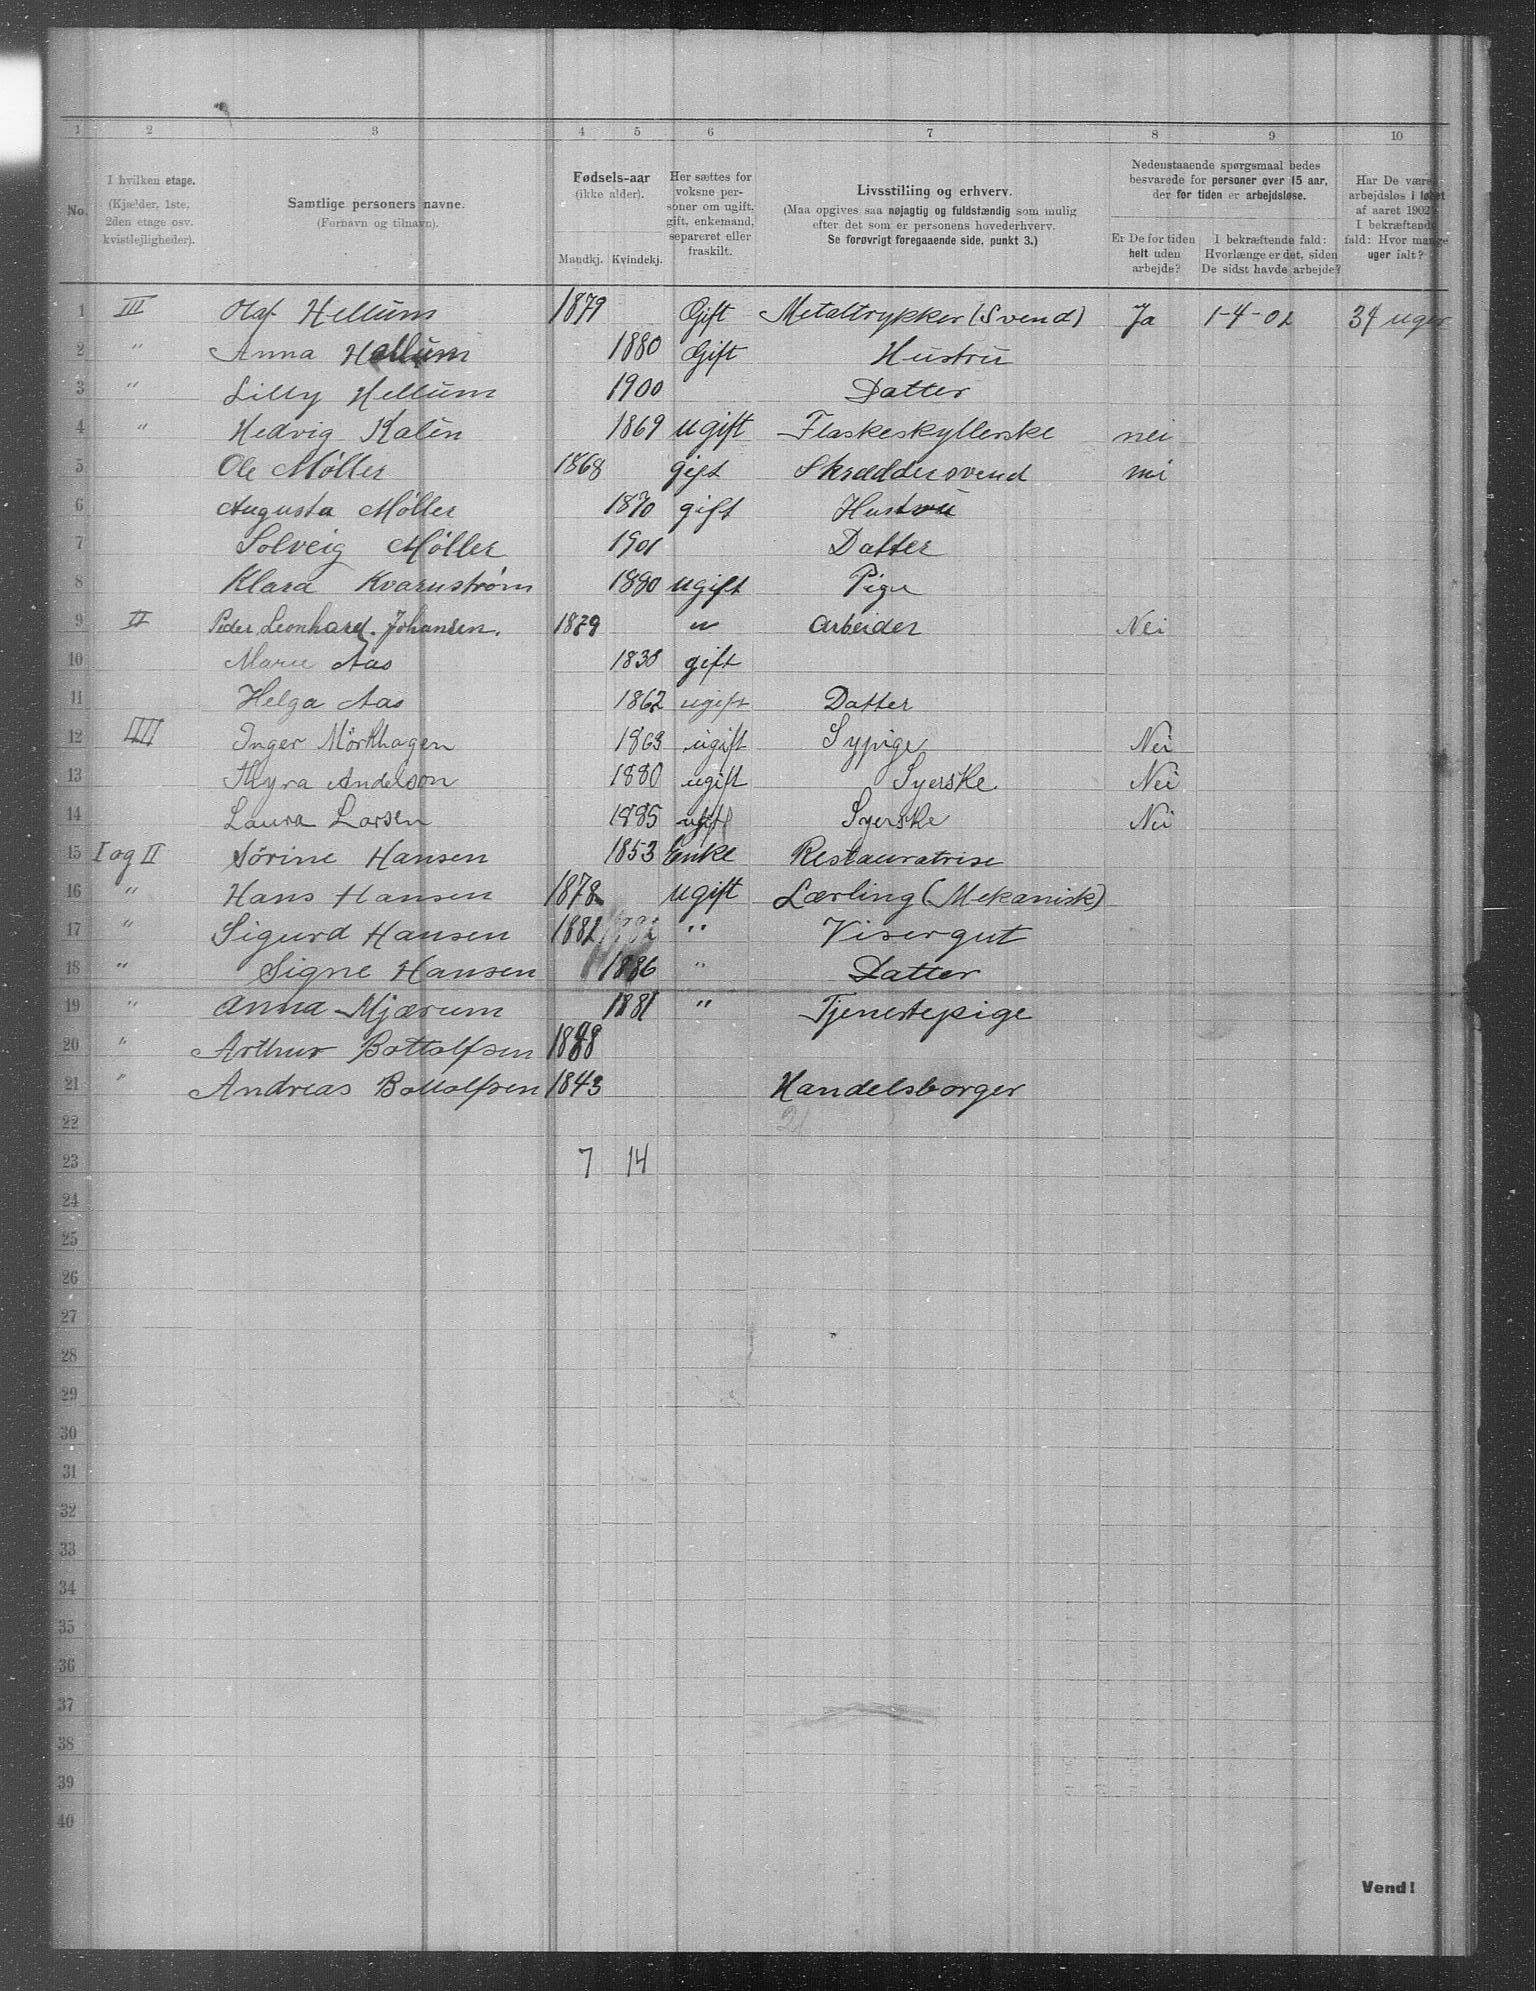 1 2 3 4 5 6 7 8 9 10
No. I hvilken etage. (Kjælder, 1ste, 2den etage osv. kvistlejligheder). Samtlige personers navne. (Fornavn og tilnavn). Fødsels-aar (ikke alder). Mandkj. Kvindekj. Her sættes for voksne personer om ugift, gift, enkemand, separeret eller fraskilt. Livsstilling og erhverv. (Maa opgives saa nøjagtig og fuldstændig som mulig efter det som er personens hovederhverv. Se forøvrigt foregaaende side, punkt 3.) Nedenstaaende spørgsmaal bedes besvarede for personer over 15 aar, der for tiden er arbejdsløse. Er De for tiden helt uden arbejde? I bekræftende fald: Hvorlænge er det, siden De sidst havde arbejde? Har De været arbejdsløs i løbet af aaret 1902? I bekræftende fald: Hvor mange uger ialt?
1 III Olaf Hellum 1879 Gift Metaltrykker (Svend) Ja 1-4-02 34 uger
2 " Anna Hellum 1880 Gift Hustru
3 " Lilly Hellum 1900 Datter
4 " Hedvig Kalèn 1869 ugift Flaskeskyllerske nei
5 Ole Møller 1868 gift Skræddersvend nei
6 Augusta Møller 1870 gift Hustru
7 Solveig Møller 1901 Datter
8 Klara Kvarnstrøm 1880 ugift Pige
9 II Peder Leonhard Johansen. 1879 " Arbeider Nei
10 Marie Aas 1838 gift
11 Helga Aas 1862 ugift Datter
12 IIII Inger Mörkhagen 1863 ugift Sypige Nei
13 Thyra Anderson 1880 ugift Syerske Nei
14 Laura Larsen 1885 ugift Syerske Nei
15 I og II Sörine Hansen 1853 Enke Restauratrise
16 " Hans Hansen 1878 ugift Lærling (Mekanisk)
17 " Sigurd Hansen 1882 1882 " Visergut
18 " Signe Hansen 1886 " Datter
19 " Anna Mjærum 1881 " Tjenestepige
20 " Arthur Bottolfsen 1888
21 " Andreas Bottolfsen 1843 Handelsborger
22 21
23 7 14
24
25
26
27
28
29
30
31
32
33
34
35
36
37
38
39
40
Vend!